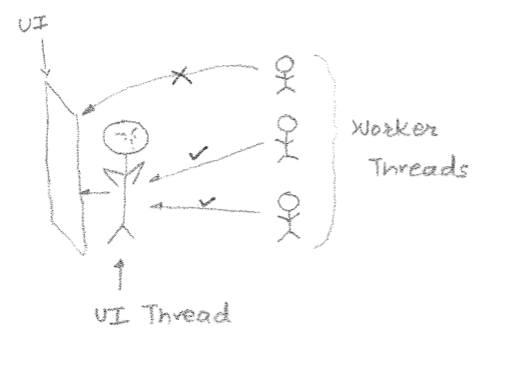 UI
Worker
Threads
UI Thread